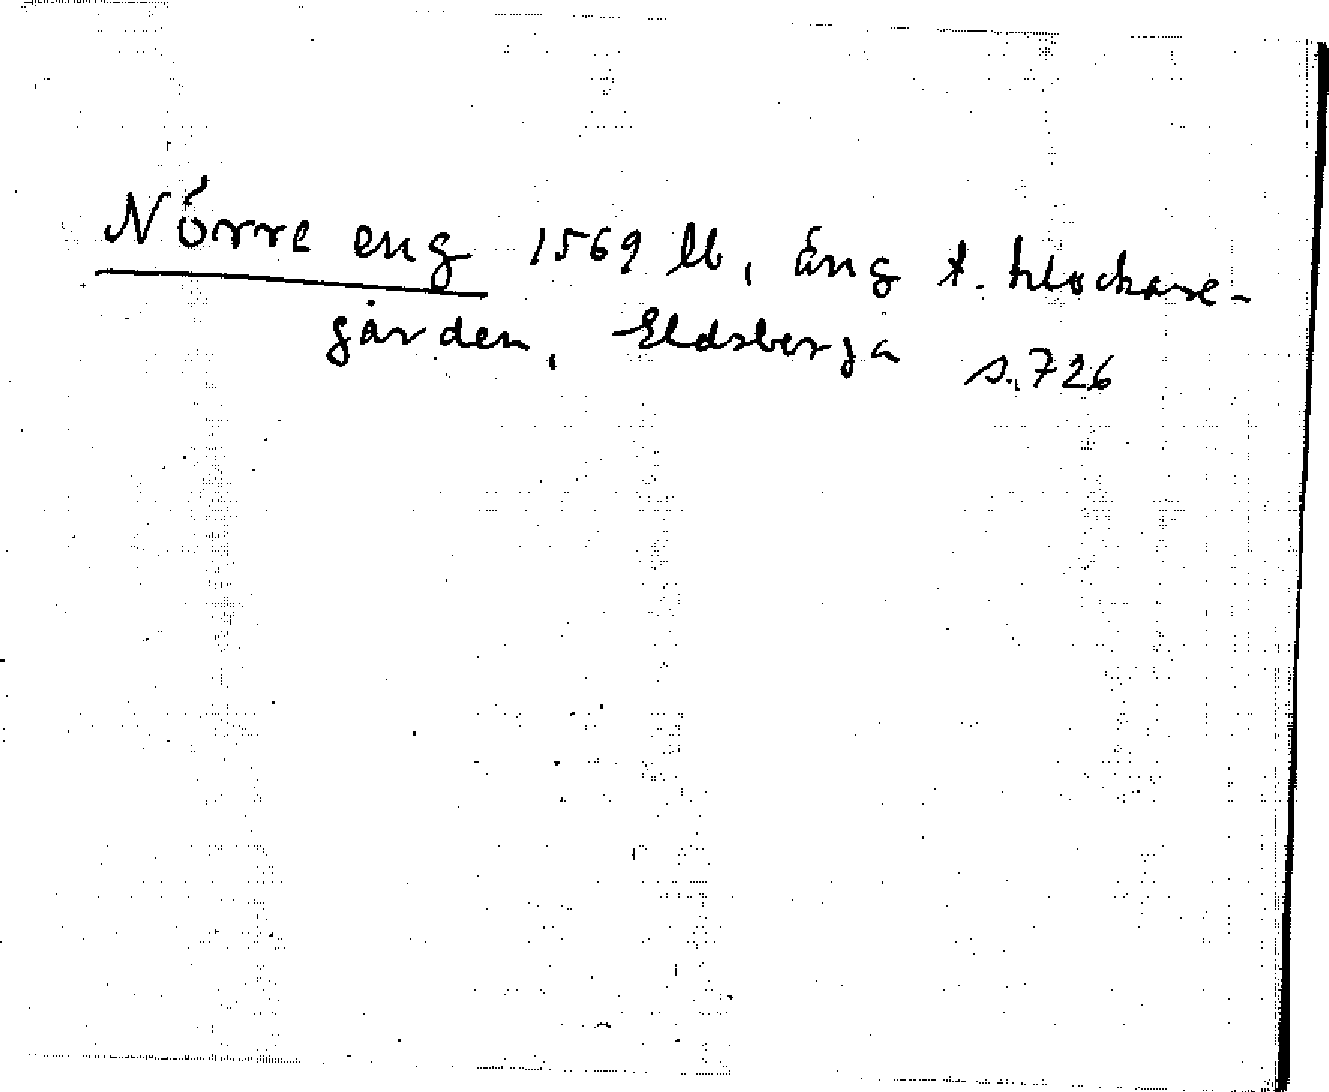 Nörre eng 1569 lb, äng t. klockare-
gården, Eldsberga s. 726